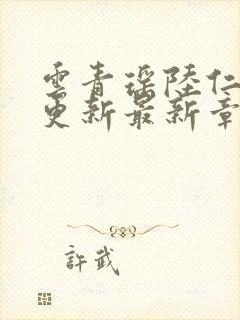 雲青瑶陸仁
更新最新章
許武